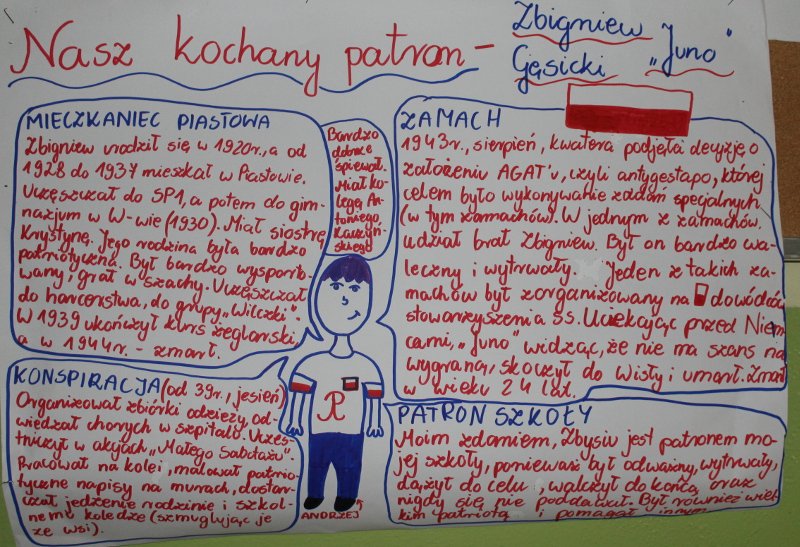 Nasz kochany patron -
Zbigniew „Juno"
Gąsicki
MIECZKANIEC PIASTOWA
Zbigniew urodził się w 1920r., a od
1928 do 1937 mieszkał w Piastowie.
Uczęszczał do SP1, a potem do gim-
nazjum w W-wie (1930). Miał siostrę
Krystynę. Jego rodzina była bardzo
patriotyczna. Był bardzo wysporto-
wany, grał w szachy. Uczęszczał
do harcerstwa, do grupy „Wilczki".
W 1939 ukończył kurs żeglarski,
a w 1944r. - zmarł.
Bardzo
dobrze
śpiewał.
Miał ko-
legę An-
toniego
Kaczyń-
skiego
ZAMACH
1943r., sierpień, kwatera podjęła decyzję o
założeniu AGAT'u, czyli antygestapo, której
celem było wykonywanie zadań specjalnych
(w tym zamachów). W jednym z zamachów
udział brał Zbigniew. Był on bardzo wa-
leczny i wytrwały. Jeden z takich za-
machów był zorganizowany na dowódców
stowarzyszenia SS. Uciekając przed Niem-
cami, „Juno" widząc, że nie ma szans na
wygraną, skoczył do Wisły i umarł. Zmarł
w wieku 24 lat.
KONSPIRACJA (od 39r., jesień)
Organizował zbiórki odzieży, od-
wiedzał chorych w szpitalu. Uczes-
tniczył w akcjach „Małego Sabotażu".
Pracował na kolei, malował patrio-
tyczne napisy na murach, dostar-
czał jedzenie rodzinie i szkol-
nemu koledze (szmuglując je
ze wsi).
ANDRZEJ
PATRON SZKOŁY
Moim zdaniem, Zbysiu jest patronem mo-
jej szkoły, ponieważ był odważny, wytrwały,
dążył do celu, walczył do końca oraz
nigdy się nie poddawał. Był również wiel-
kim patriotą i pomagał innym